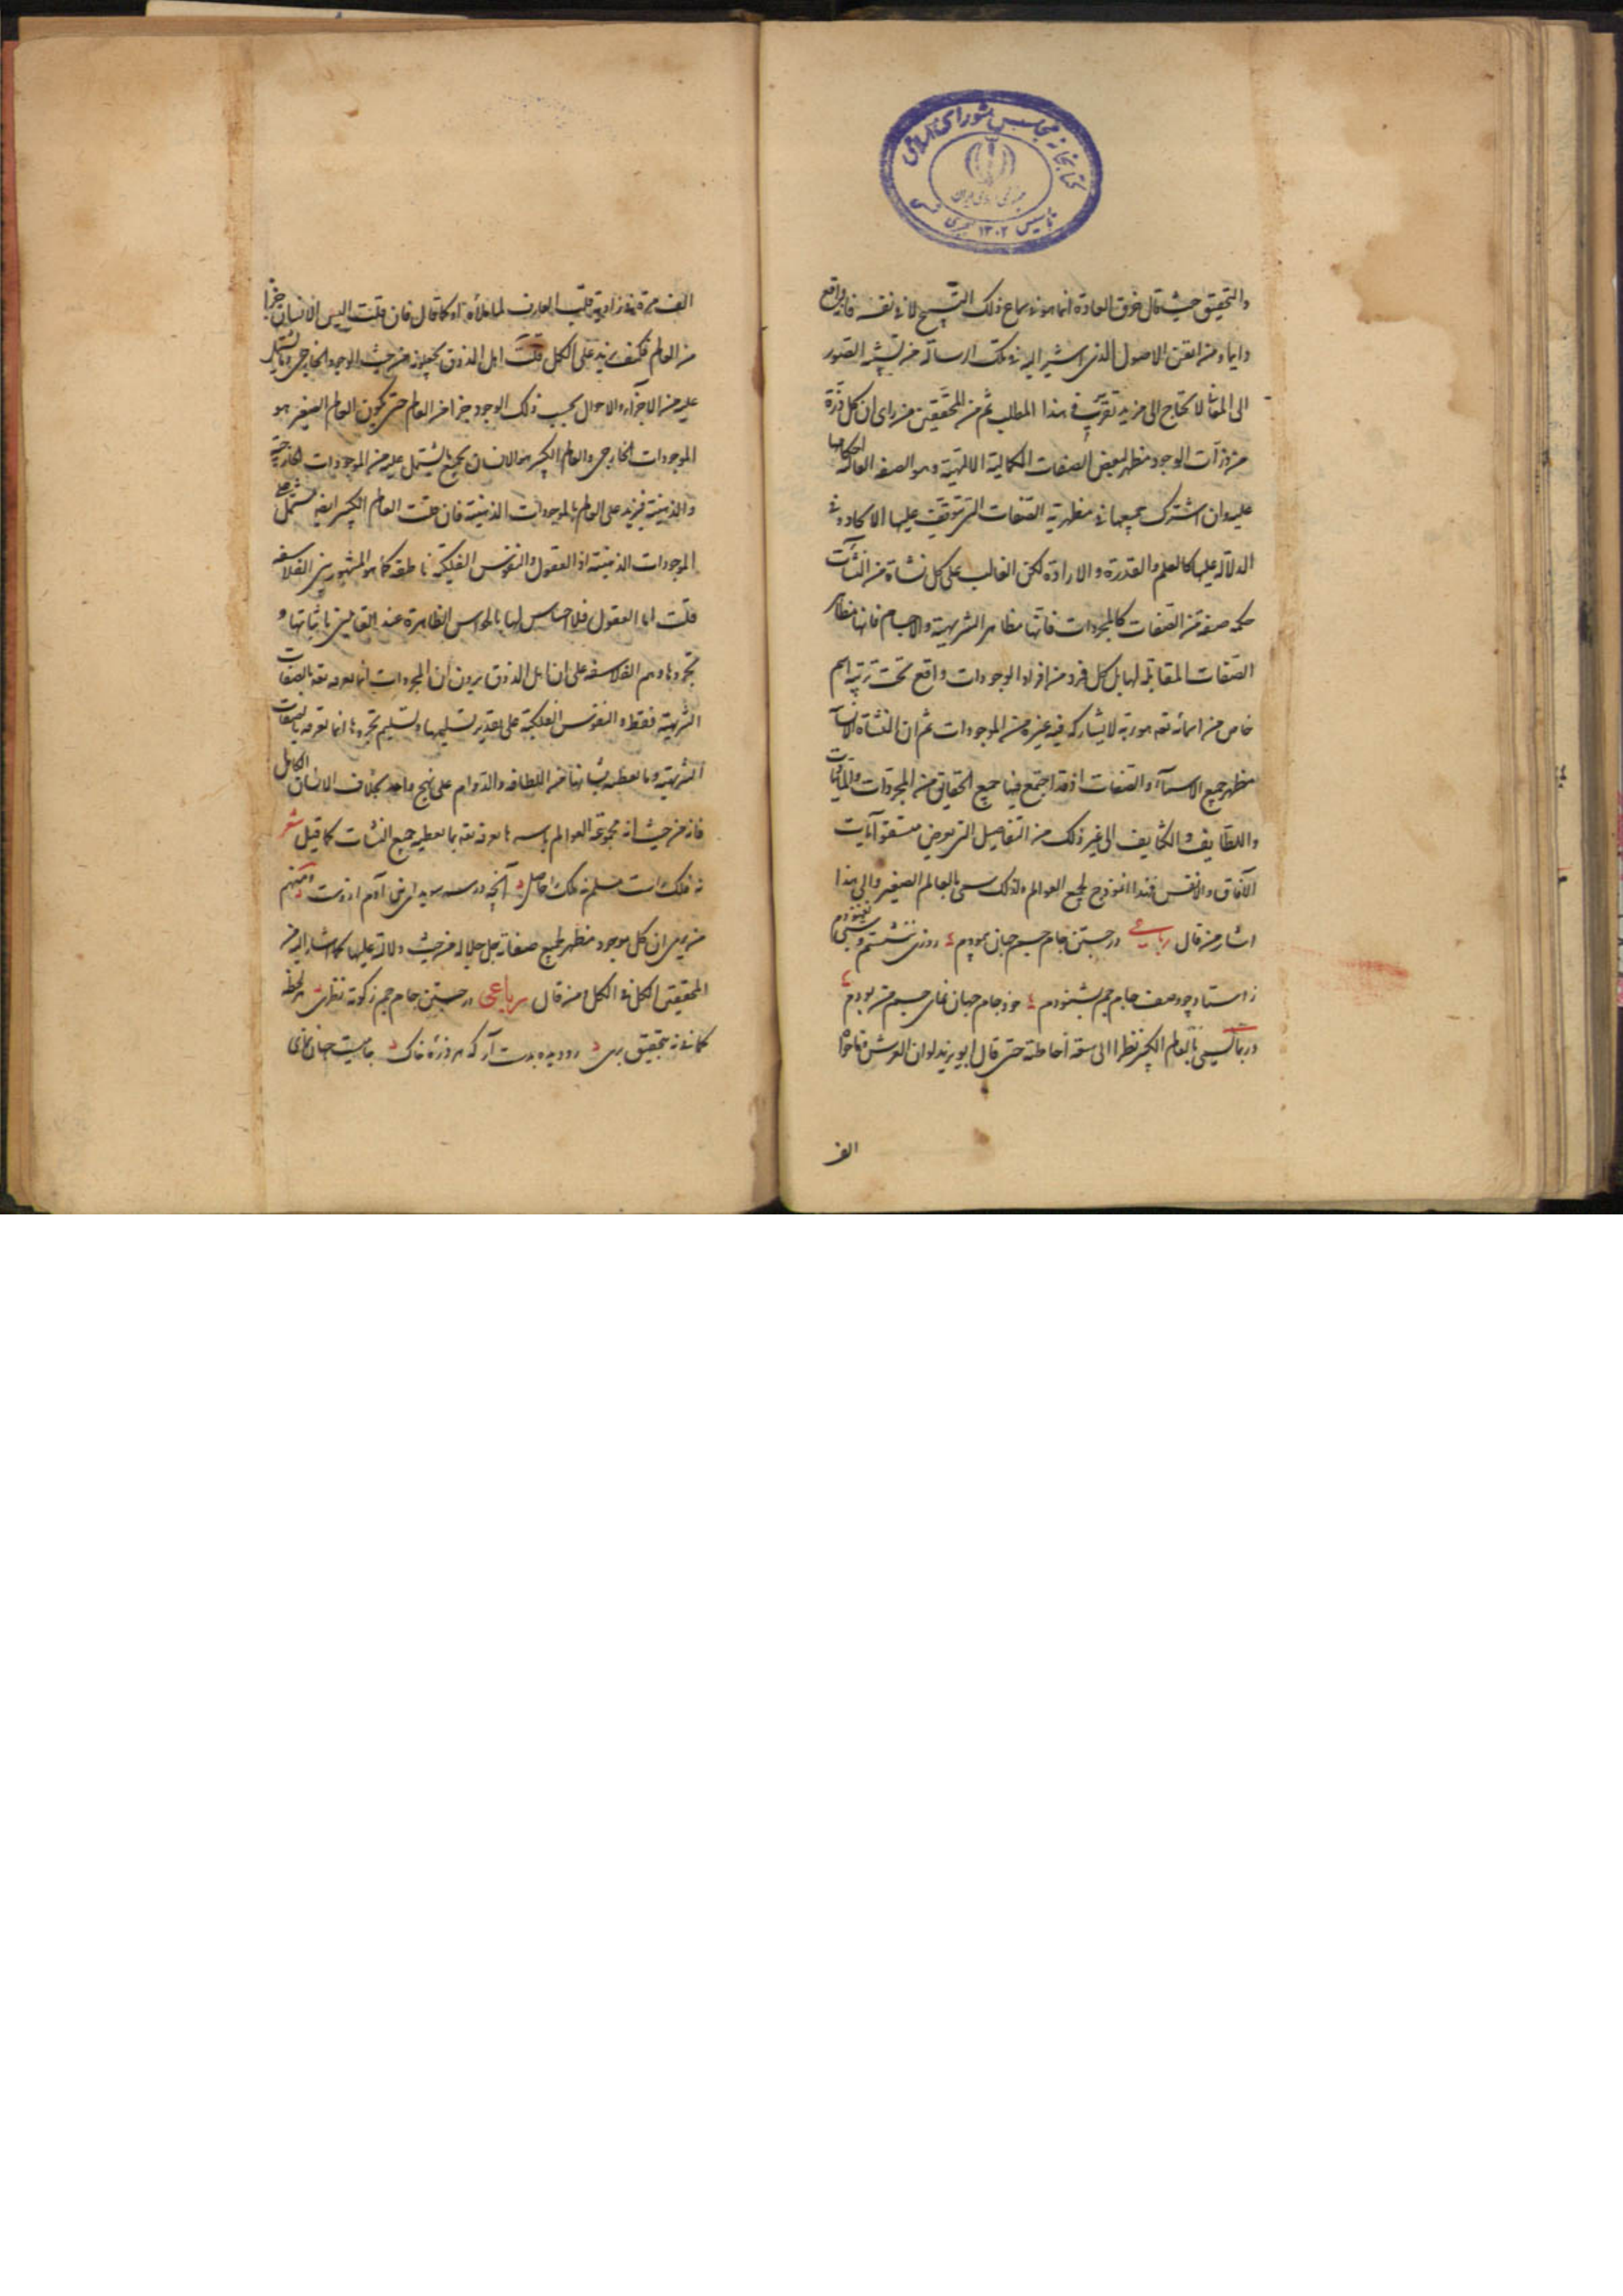 کتابخانه مجلس شورای اسلامی
جمهوری اسلامی ایران
تأسیس ۱۳۰۲ هجری شمسی
والتحقیق حیث قال خرق العادة انما هو فی سماع ذلک التسبیح لا فی نفسه فانه واقع
دایما و من اتقن الاصول الذی اشیر الیه فی تلک الرسالة من
الی المعانی لا یحتاج الی مزید تقریب فی هذا المطلب ثم من المحققین من رای ان کل ذرة
من ذرات الوجود مظهر لبعض الصفات الکمالیة الالهیة و هو الصفة الغالبة احکامها
علیه وان اشترک جمیعها فی مظهریة الصفات التی یتوقف علیها الایجاد و فی
الدلالة علیها کالعلم والقدرة والارادة لکن الغالب علی کل نشأة من النشآت
حکم صفة من الصفات کالمجردات فانها مظاهر التنزیهیة والاجسام فانها مظاهر
الصفات المقابلة لها بل کل فرد من افراد الموجودات واقع تحت تربیة اسم
خاص من اسمائه تعه هو ربه لا یشارکه فیه غیره من الموجودات ثم ان النشأة الانسانیة
مظهر جمیع الاسماء والصفات اذ قد اجتمع فیها جمیع الحقایق من المجردات والمادیات
واللطایف والکثایف الی غیر ذلک من التفاصیل التی
الآفاق والانفس فهذا انموذج لجمیع العوالم ولذلک سمی بالعالم الصغیر والی هذا
اشار من قال رباعی در جستن جام جم جهان پیمودم روزی ننشستم و شبی نغنودم
ز استاد چو وصف جام جم بشنودم خود جام جهان نمای جم من بودم
و ربما سمی بالعالم الکبیر نظرا الی سعة احاطته حتی قال ابو یزید لو ان العرش و ما حواه
الف
الف مرة فی زاویة قلب العارف لما ملأه او کما قال فان قلت الیس الانسان جزأ
من العالم فکیف یزید علی الکل قلت اهل الذوق من حیث الوجود الخارجی وما یشتمل
علیه من الاجزاء والاحوال بحسب ذلک الوجود جزأ من العالم حتی یکون العالم الصغیر هو
الموجودات الخارجی والعالم الکبیر هو الانسان بجمیع ما یشتمل علیه من الموجودات الخارجیة
والذهنیة فیزید علی العالم بالموجودات الذهنیة فان قلت العالم الکبیر ایضا مشتمل علی
الموجودات الذهنیة اذ العقول والنفوس الفلکیة ناطقة کما هو المشهور بین الفلاسفه
قلت اما العقول فلا احساس لها بالحواس الظاهرة عند القائلین باثباتها و
تجردها و هم الفلاسفه علی ان اهل الذوق یرون ان المجردات انما یعرفه تعه بالصفات
التنزیهیة فقط و النفوس الفلکیة علی تقدیر تسلیمها و تسلیم تجردها انما تعرفه بالصفات
التنزیهیة وما یعطیه من اللطافة والدوام علی نهج واحد بخلاف الانسان الکامل
فانه من حیث انه مجموعة العوالم باسرها یعرفه تعه بما یعطیه جمیع النشآت کما قیل شعر
نه فلک راست مسلم نه ملک را حاصل آنچه در سر سویدای بنی آدم ازوست ومنهم
من یری ان کل موجود مظهر لجمیع صفاته جل جلاله من حیث دلالته علیها کما اشار الیه من
المحققین الکل فی الکل من قال رباعی در جستن جام جم ز کوته نظری هر لحظه
گمانی نه بتحقیق بری رو دیده بدست آر که هر ذرهٔ خاک جامیست جهان نمای